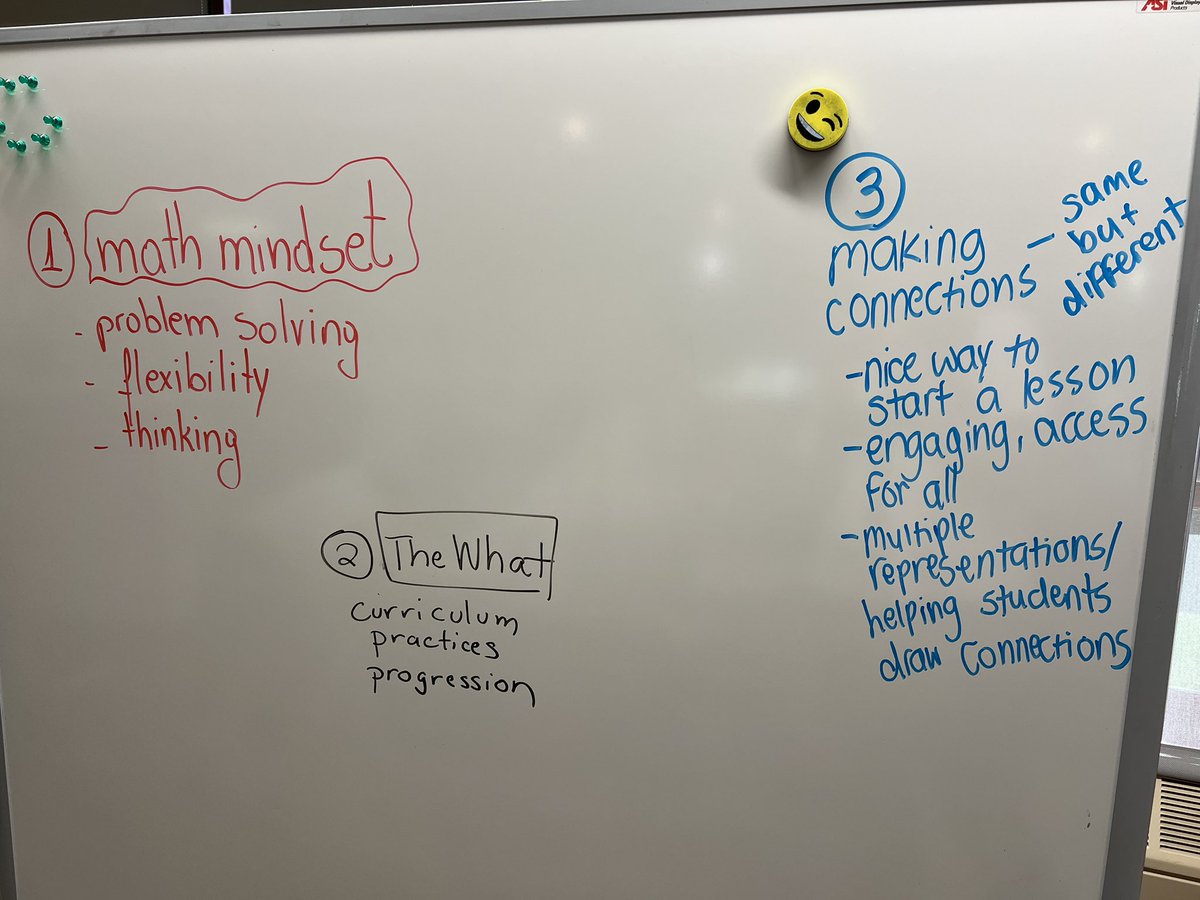 ASI Visual Display Products
1 math mindset
- problem solving
- flexibility
- thinking
2 The What
curriculum
practices
progression
3
making
connections
- same
but
different
-nice way to
start a lesson
-engaging, access
for all
-multiple
representations/
helping students
draw connections